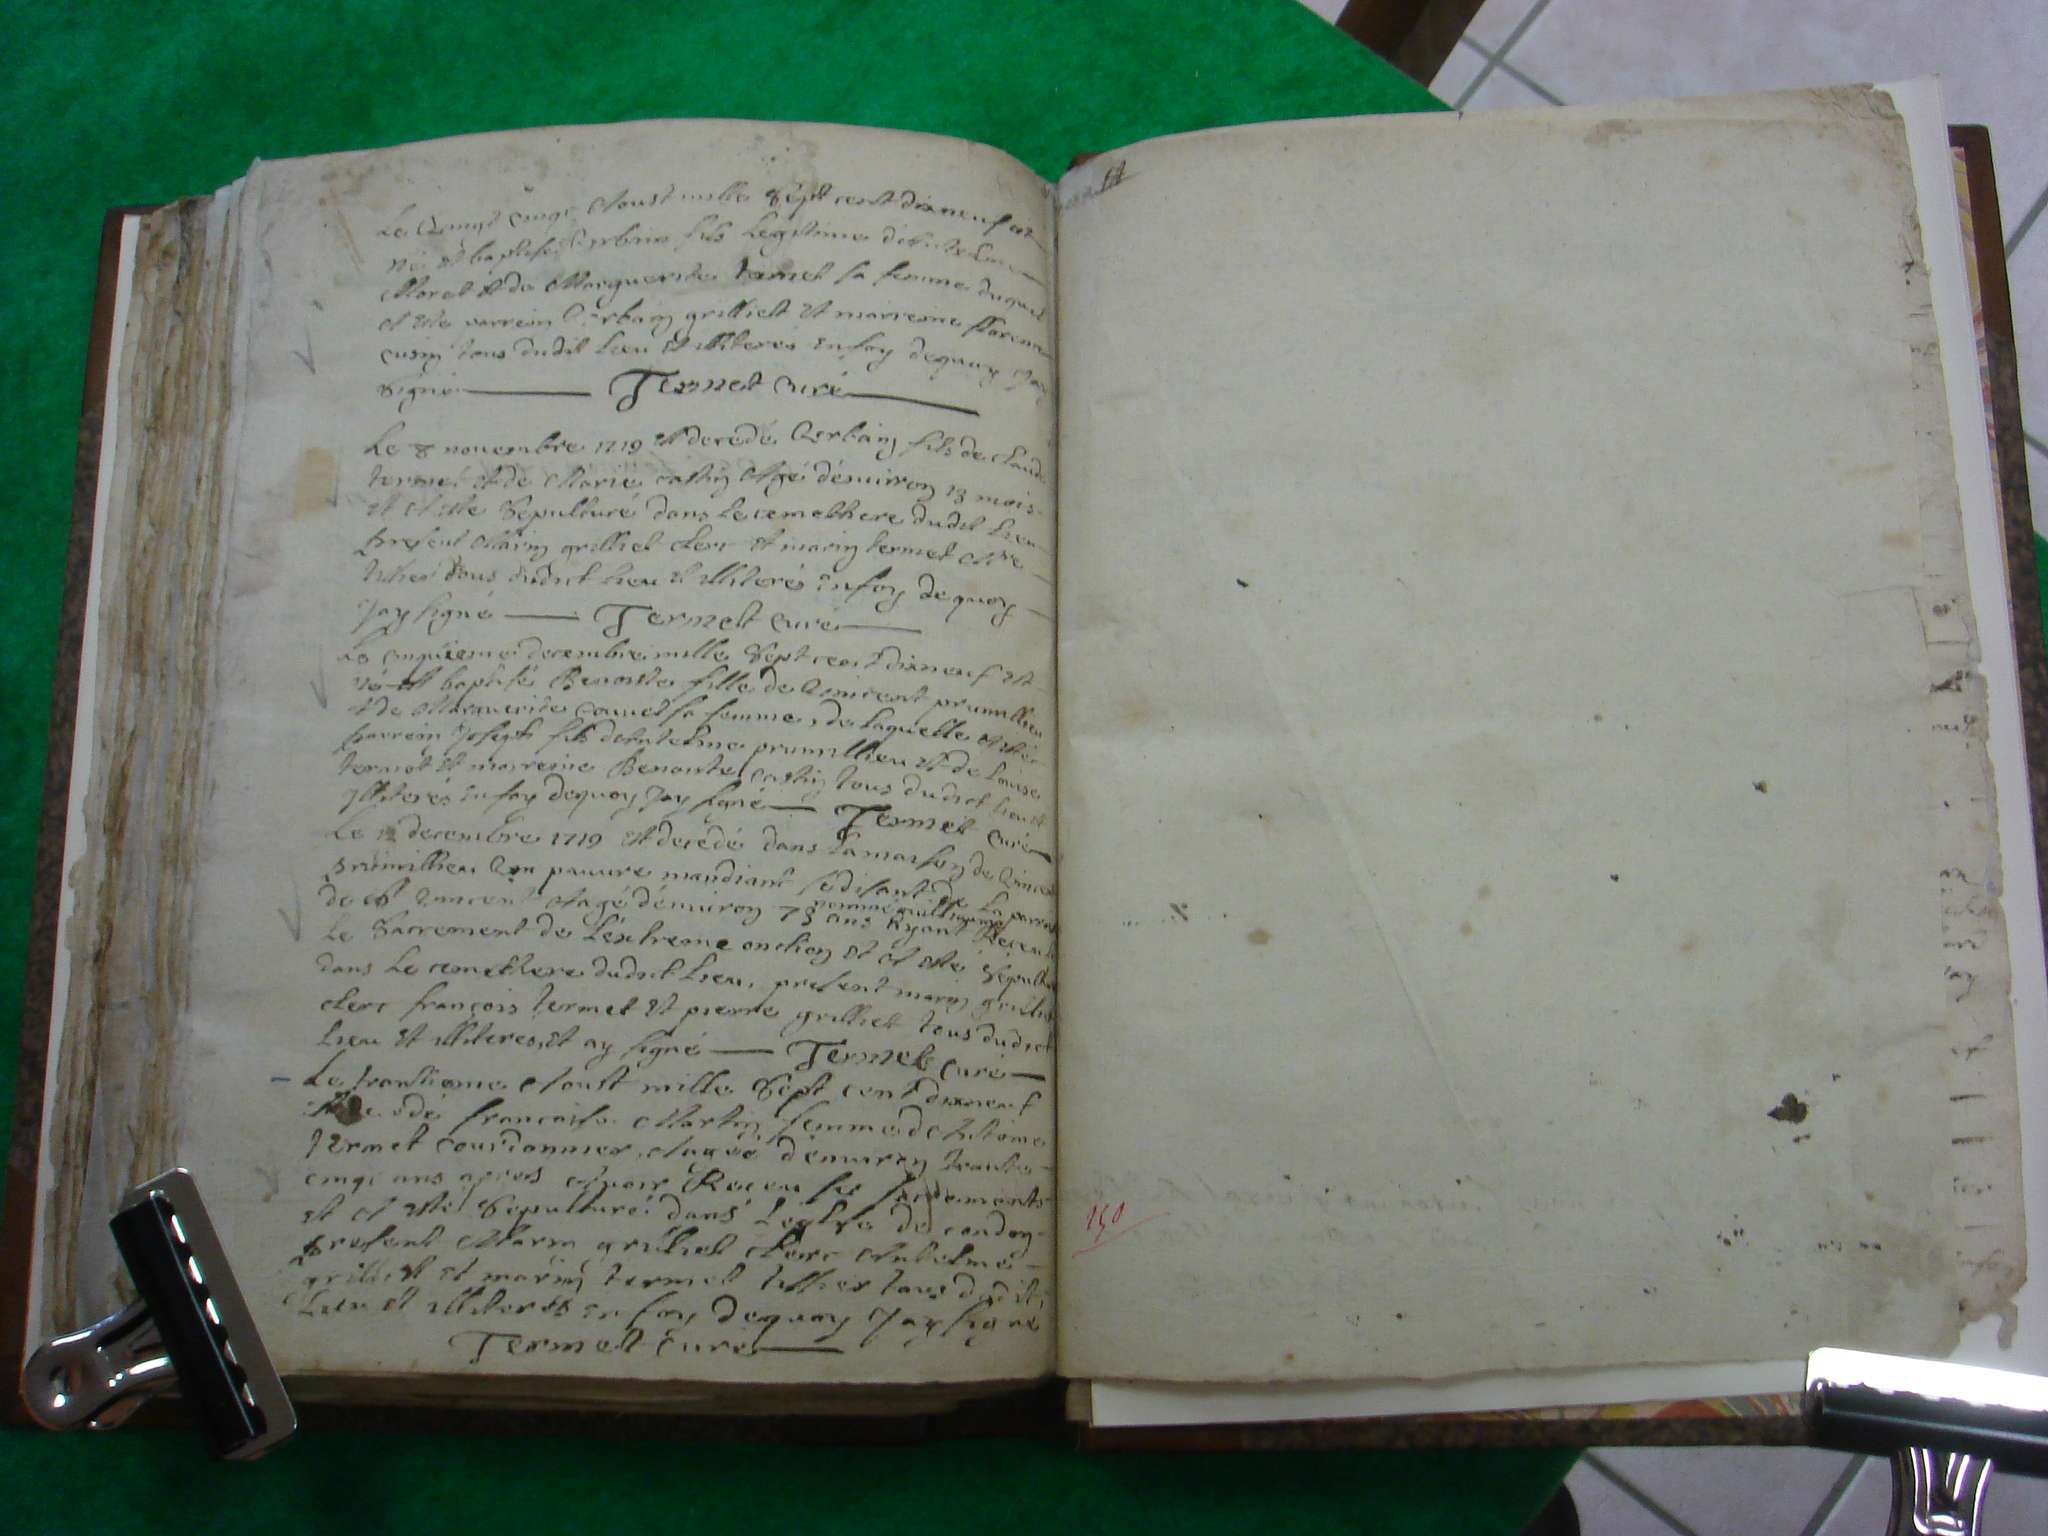 Le vingt cinqe Aoust mille Sept cent dixneuf est
né et baptisé Verbain fils Legitime d'Antelme
Moret et de Marguerite termet sa femme duquel
a esté parrein Verbain grilliet et marreine florence
cusin tous dudit Lieu et illiterés en foy dequoy Jay
Signé Termet Curé
Le 8 novembre 1719 est decedé Verbain fils de claude
termet et de Marie castin Agé d'environ 13 mois
et A esté Sepulturé dans Le cemethere dudit Lieu
Present Marin grilliet clerc et marin termet
tous dudict Lieu et illiterés en foy de quoy
Jay signé Termet Curé
Le cinquieme decembre mille Sept cent dixneuf est
né et baptisé Benoiste fille de Vincent prunillieu
et de Marguerite cauvet sa femme, de Laquelle A esté
parrein Joseph fils dAntelme prunillieu et de Louise
termet et marreine Benoiste castin tous dudict Lieu et
Illiterés en foy dequoy Jay signé Termet Curé
Le 12 decembre 1719 est decedé dans La maison de Vincent
Prunillieu Vn pauvre mandiant se disant de La parroisse
nommé guilliaume
de St Vincent Aagé d'environ 75 ans Ayant Receu
Le Sacrement de L'extreme onction et A esté Sepulturé
dans Le cemethere dudict Lieu, present marin grilliet
clerc françois termet et pierre grilliet tous dudict
Lieu et illiteres, et ay signé Termet Curé
Le trantieme Aoust mille Sept cent dixneuf
decedé francaise Martin femme dAntelme
termet Courdonnier, Aagée d'environ trante
cinqe ans apres Avoir Receu les sacrements
et A esté Sepulturé dans L'eglise de condon
Present Marin grilliet clerc Antelme
grilliet et marin termet tessier tous dudit
Lieu et illiterés en foy dequoy Jay signe
Termet Curé
150